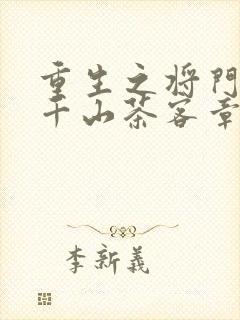 重生之将門
千山茶客章
李新義